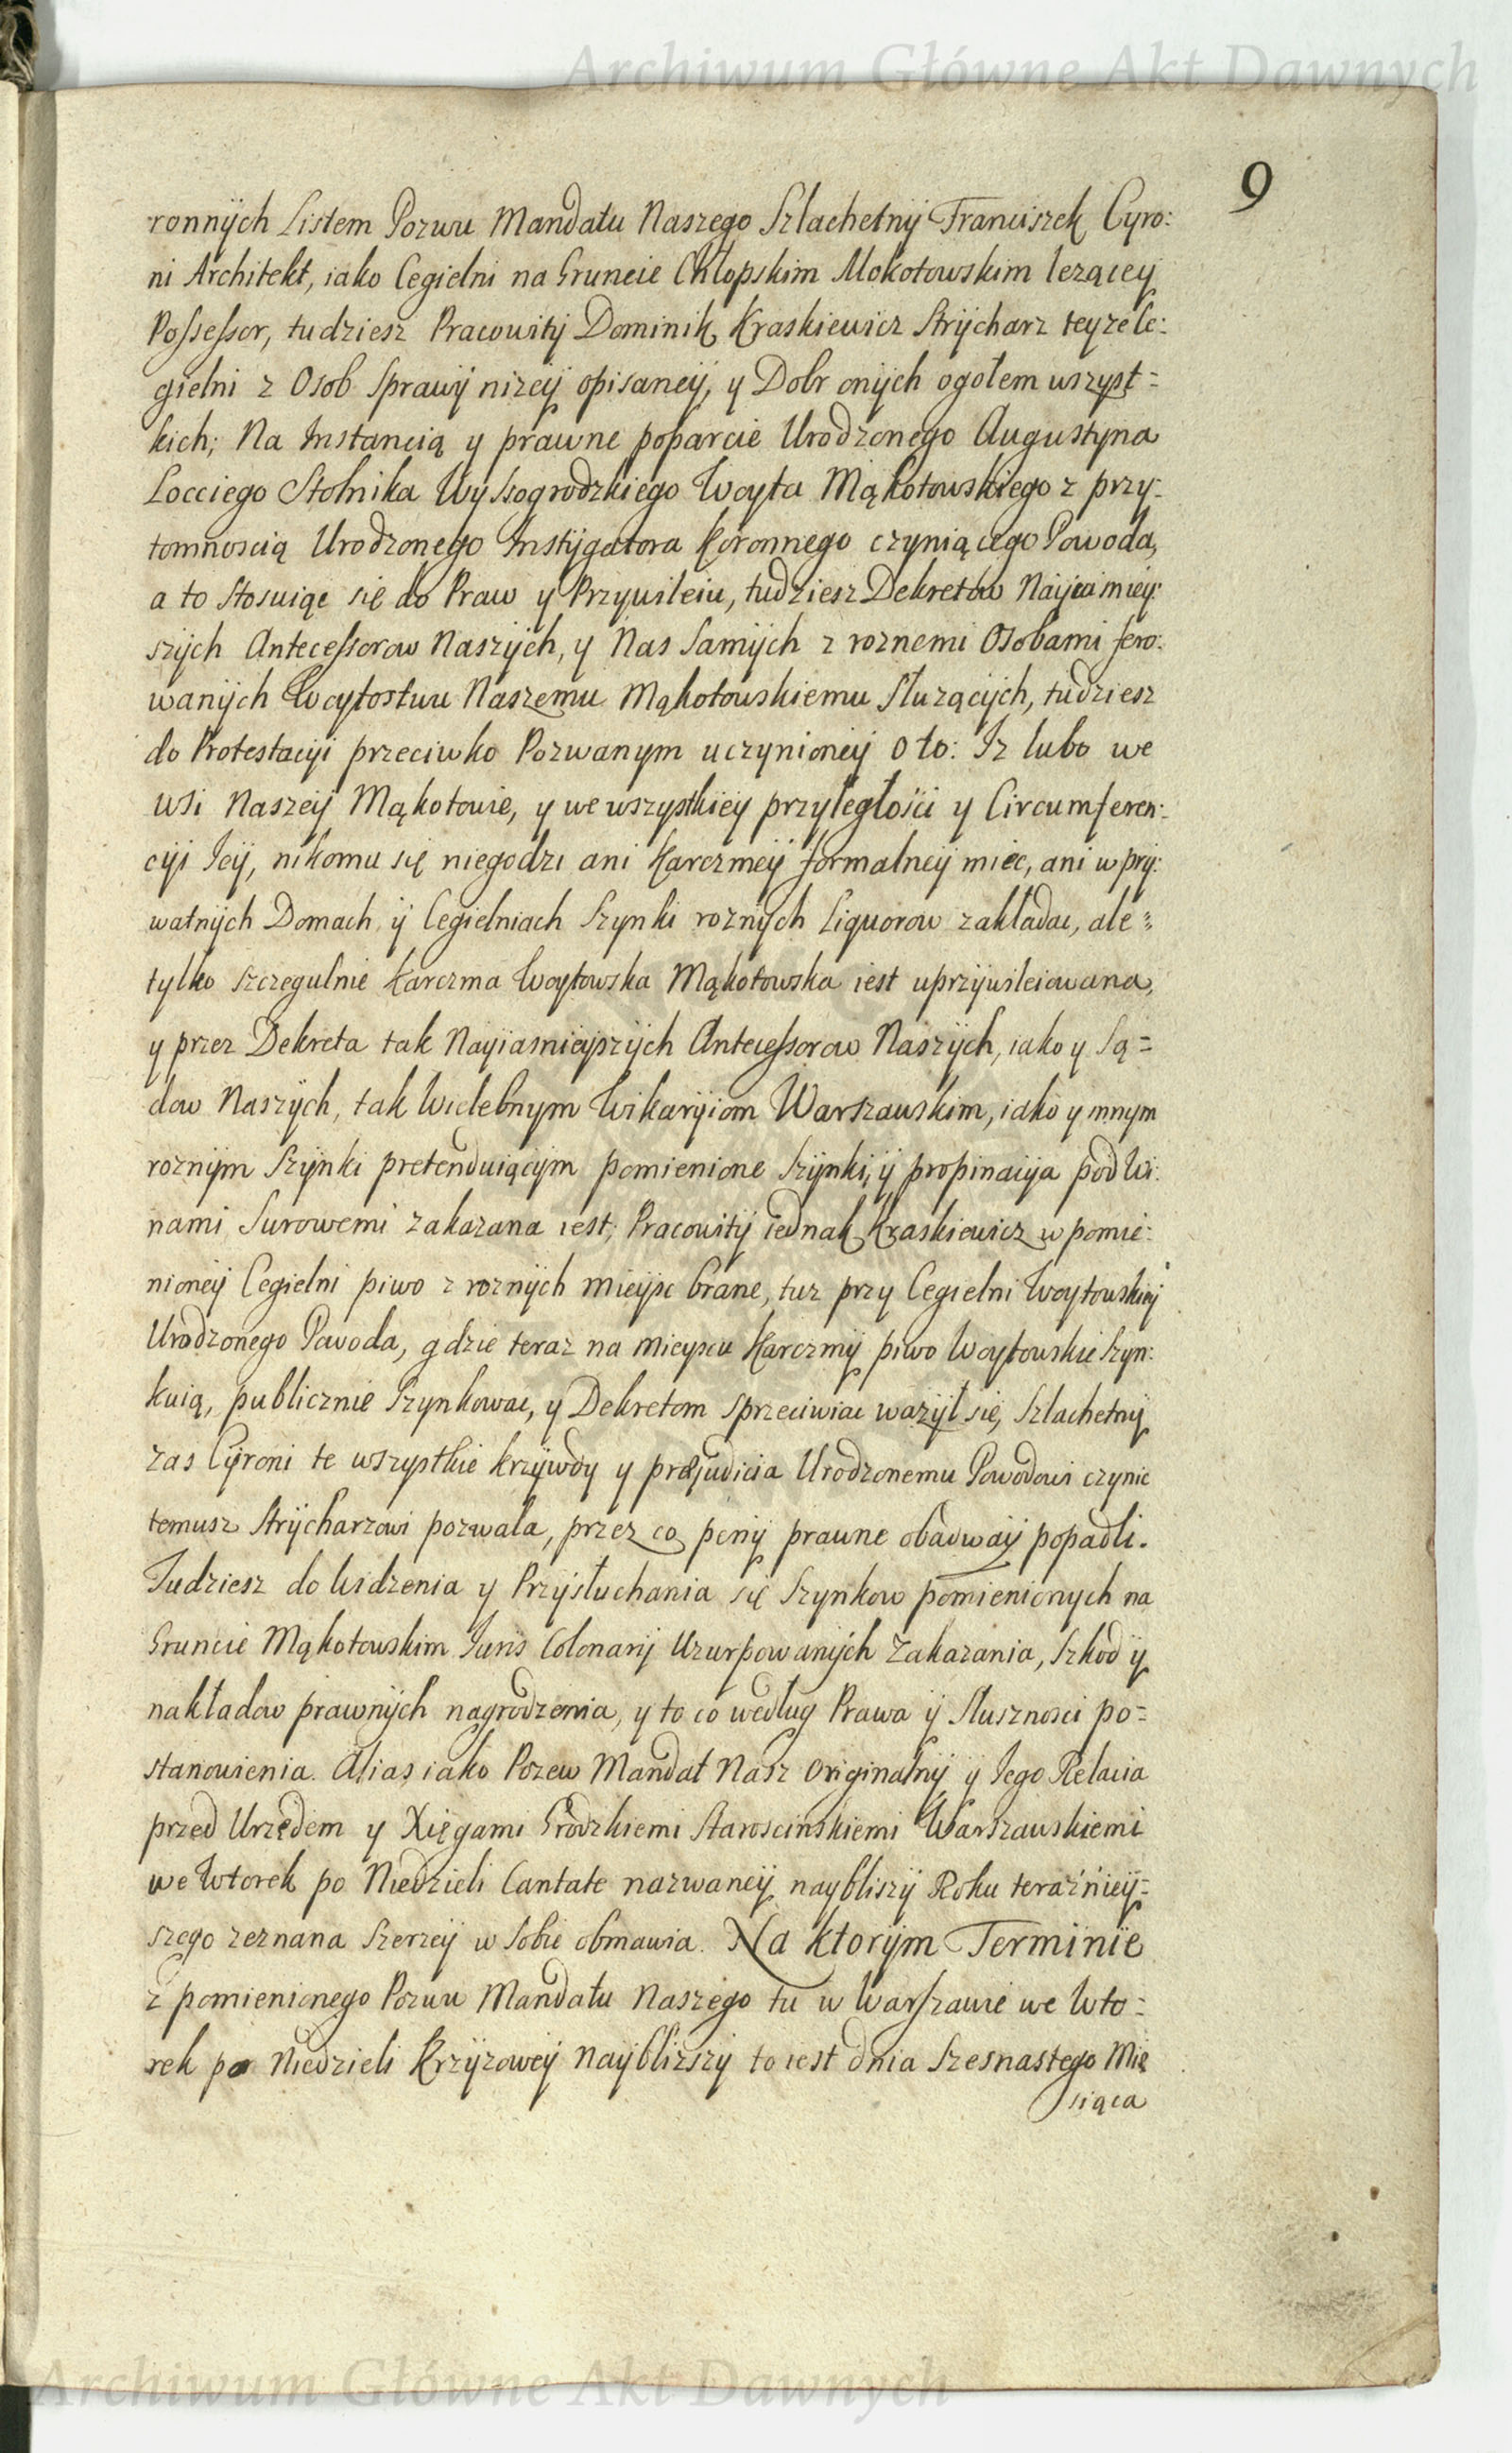 Archiwum Główne Akt Dawnych
9
ronnÿch Listem Pozwu Mandatu Naszego Szlachetnÿ Franciszek Cyro:
ni Architekt, iako Cegielni na Gruncie Chłopskim Mokotowskim lezącey
Possessor, tudziesz Pracowitÿ Dominik Kraskiewicz Strÿcharz teyze Ce:
gielni z Osob Sprawÿ nizeÿ opisaneÿ, y Dobr onÿch ogołem wszyst=
kich; Na Instancią y prawne poparcie Urodzonego Augustyna
Locciego Stolnika Wyssogrodzkiego Woyta Mąkotowskiego z przy:
tomnoscią Urodzonego Instÿgatora Koronnego czyniącego Powoda,
a to stosuiąc się do Praw y Przywileiu, tudziesz Dekretów Naÿiasnieÿ:
szÿch Antecessorow Naszÿch, y Nas Samÿch z roznemi Osobami fero:
wanÿch Woytostwu Naszemu Mąkotowskiemu Słuzącÿch, tudziesz
do Protestacÿi przeciwko Pozwanym uczynioneÿ oto: Iz lubo we
wsi Naszeÿ Mąkotowie, y we wszystkiey przyległości y Circumferen:
cÿi Ieÿ, nikomu się niegodzi ani Karczmeÿ formalneÿ miec, ani w prÿ:
watnÿch Domach ÿ Cegielniach Szynki roznÿch Liquorow zakładac, ale
tylko szczegulnie Karczma Woytowska Mąkotowska iest uprzÿwileiowana,
y przez Dekreta tak Nayiasnieyszÿch Antecessorow Naszÿch, iako y Są=
dow Naszÿch, tak Wielebnym Wikarÿiom Warszawskim, iako y innym
roznÿm Szÿnki pretenduiącÿm pomienione Szÿnki, ÿ propinacÿa pod Wi:
nami Surowemi zakazana iest, Pracowitÿ iednak Kraskiewicz w pomie:
nioneÿ Cegielni piwo z roznÿch mieÿsc brane, tuz przy Cegielni Woytowskieÿ
Urodzonego Powoda, gdzie teraz na mieyscu Karczmÿ piwo Woytowskie Szyn:
kuią, publicznie Szynkowac, y Dekretom sprzeciwiac wazÿł się, Szlachetnÿ
zas Cÿroni te wszystkie krzÿwdy y præjudicia Urodzonemu Powodowi czynic
temusz Strÿcharzowi pozwala, przez co penÿ prawne obadwaÿ popadli.
Tudziesz do Widzenia y Przÿsłuchania się Szynkow pomienionych na
Gruncie Mąkotowskim Iuris Colonarÿ Uzurpowanÿch Zakazania, Szkod ÿ
nakładow prawnÿch nagrodzenia, y to co według Prawa ÿ Słusznosci po=
stanowienia. Alias iako Pozew Mandat Nasz Originalnÿ y Iego Relacia
przed Urzędem y Xięgami Grodzkiemi Staroscinskiemi Warszawskiemi
we Wtorek po Niedzieli Cantate nazwaneÿ naybliszÿ Roku teraźnieÿ=
szego zeznana Szerzeÿ w Sobie obmawia. Na ktorÿm Terminie
z pomienionego Pozwu Mandatu Naszego tu w Warszawie we Wto=
rek po Niedzieli Krzÿzoweÿ Naÿblizszÿ to iest dnia Szesnastego Mie
siąca
Archiwum Główne Akt Dawnych